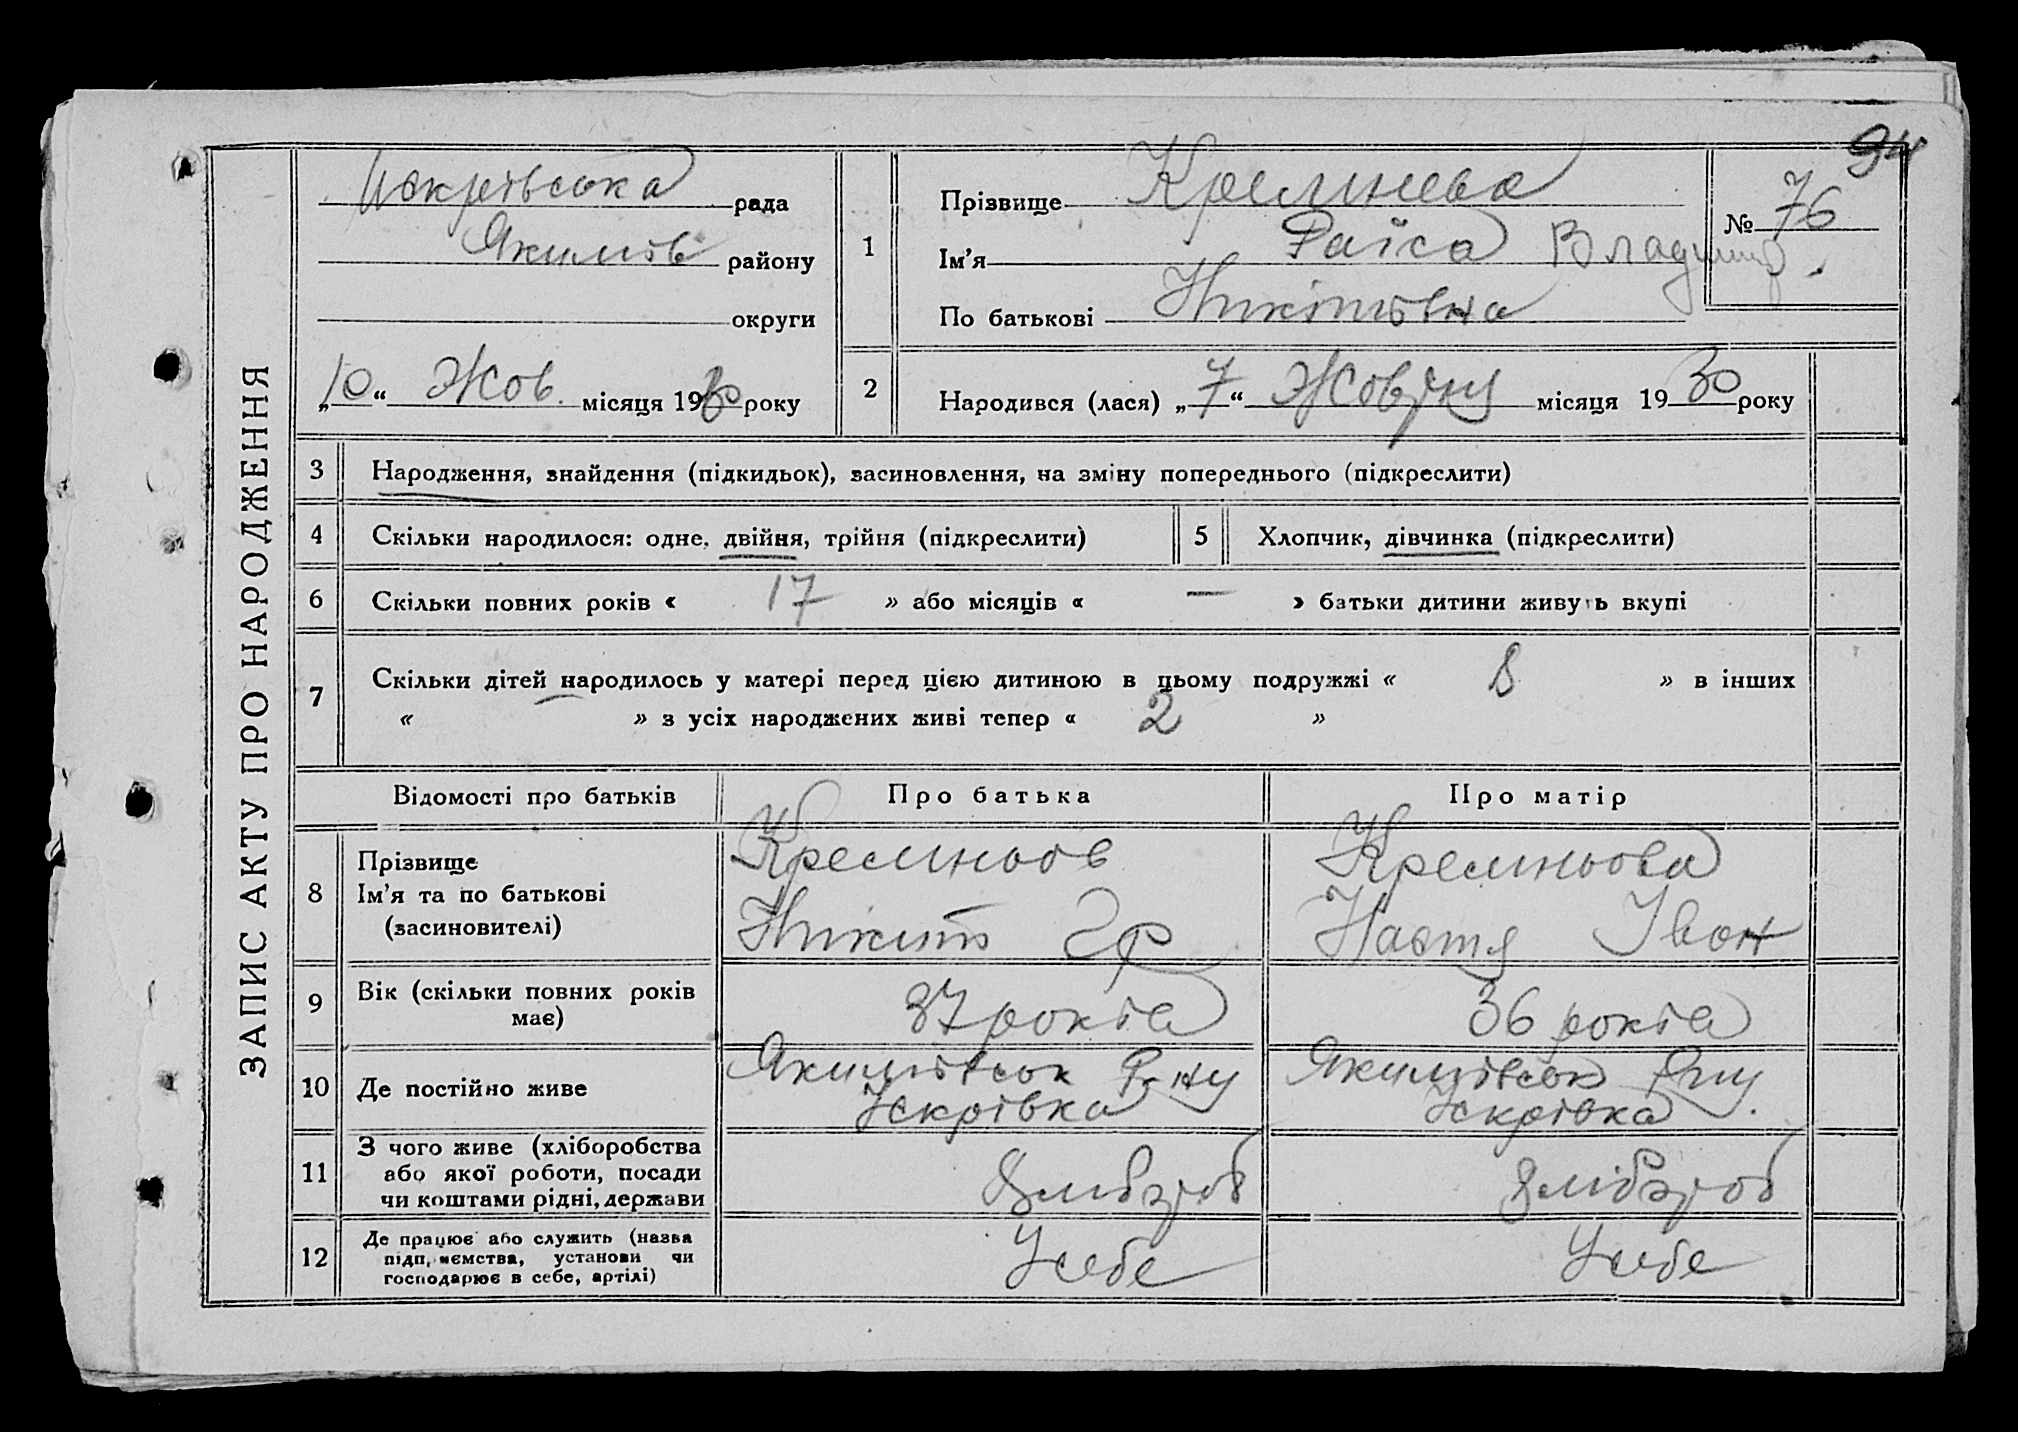 94
Іскрівська рада
Якимів району
округи
„10“ Жов. місяця 1930 року
1
Прізвище Кремнева
Ім’я Раїса Владимир.
По батькові Никітівна
№ 76
2
Народився (лася) „7“ Жовтня місяця 1930 року
ЗАПИС АКТУ ПРО НАРОДЖЕННЯ
3 Народження, знайдення (підкидьок), засиновлення, на зміну попереднього (підкреслити)
4 Скільки народилося: одне, двійня, трійня (підкреслити)
5 Хлопчик, дівчинка (підкреслити)
6 Скільки повних років « 17 » або місяців « — » батьки дитини живуть вкупі
7 Скільки дітей народилось у матері перед цією дитиною в цьому подружжі « 8 » в інших
« — » з усіх народжених живі тепер « 2 »
Відомості про батьків
Про батька
Про матір
8
Прізвище
Ім’я та по батькові
(засиновителі)
Кремньов
Никита Гр
Кремньова
Настя Іван
9
Вік (скільки повних років
має)
37 років
36 років
10 Де постійно живе
Якимівськ Р-ну
Іскрівка
Якимівськ Рну.
Іскрівка
11
З чого живе (хліборобства
або якої роботи, посади
чи коштами рідні, держави
Хлібороб
Хлібороб
12
Де працює або служить (назва
підприємства, установи чи
господарює в себе, артілі)
У себе
У себе